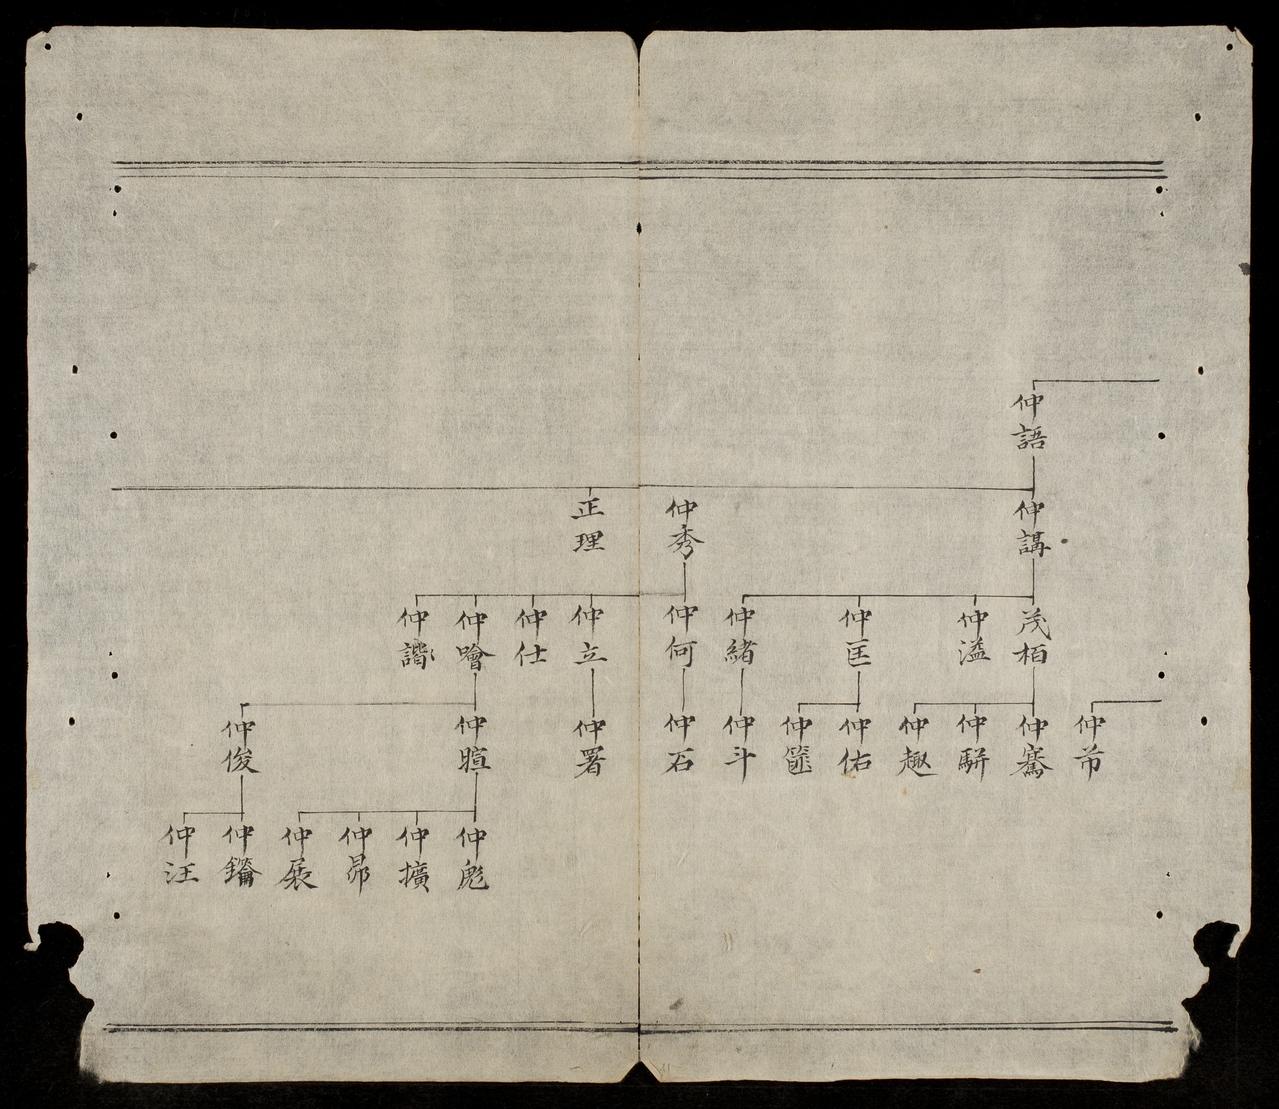 仲語
仲講
仲秀
正理
茂栢
仲溢
仲匡
仲緒
仲何
仲立
仲仕
仲噲
仲諧
仲芾
仲騫
仲駢
仲趣
仲佑
仲篚
仲斗
仲石
仲署
仲暄
仲俊
仲彪
仲擴
仲昂
仲展
仲鑰
仲汪